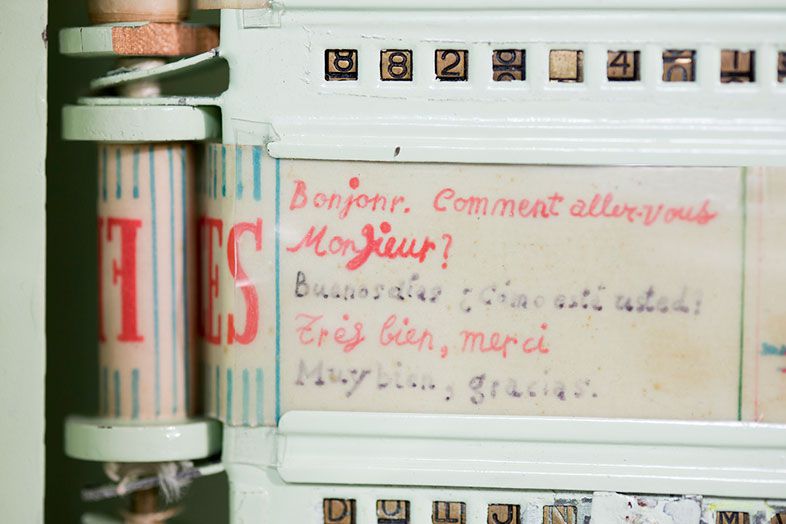 8 8 2 4
ES
Bonjonr. Comment aller-vous
Monsieur?
Buenos dias ¿Cómo está usted?
Très bien, merci
Muy bien, gracias.